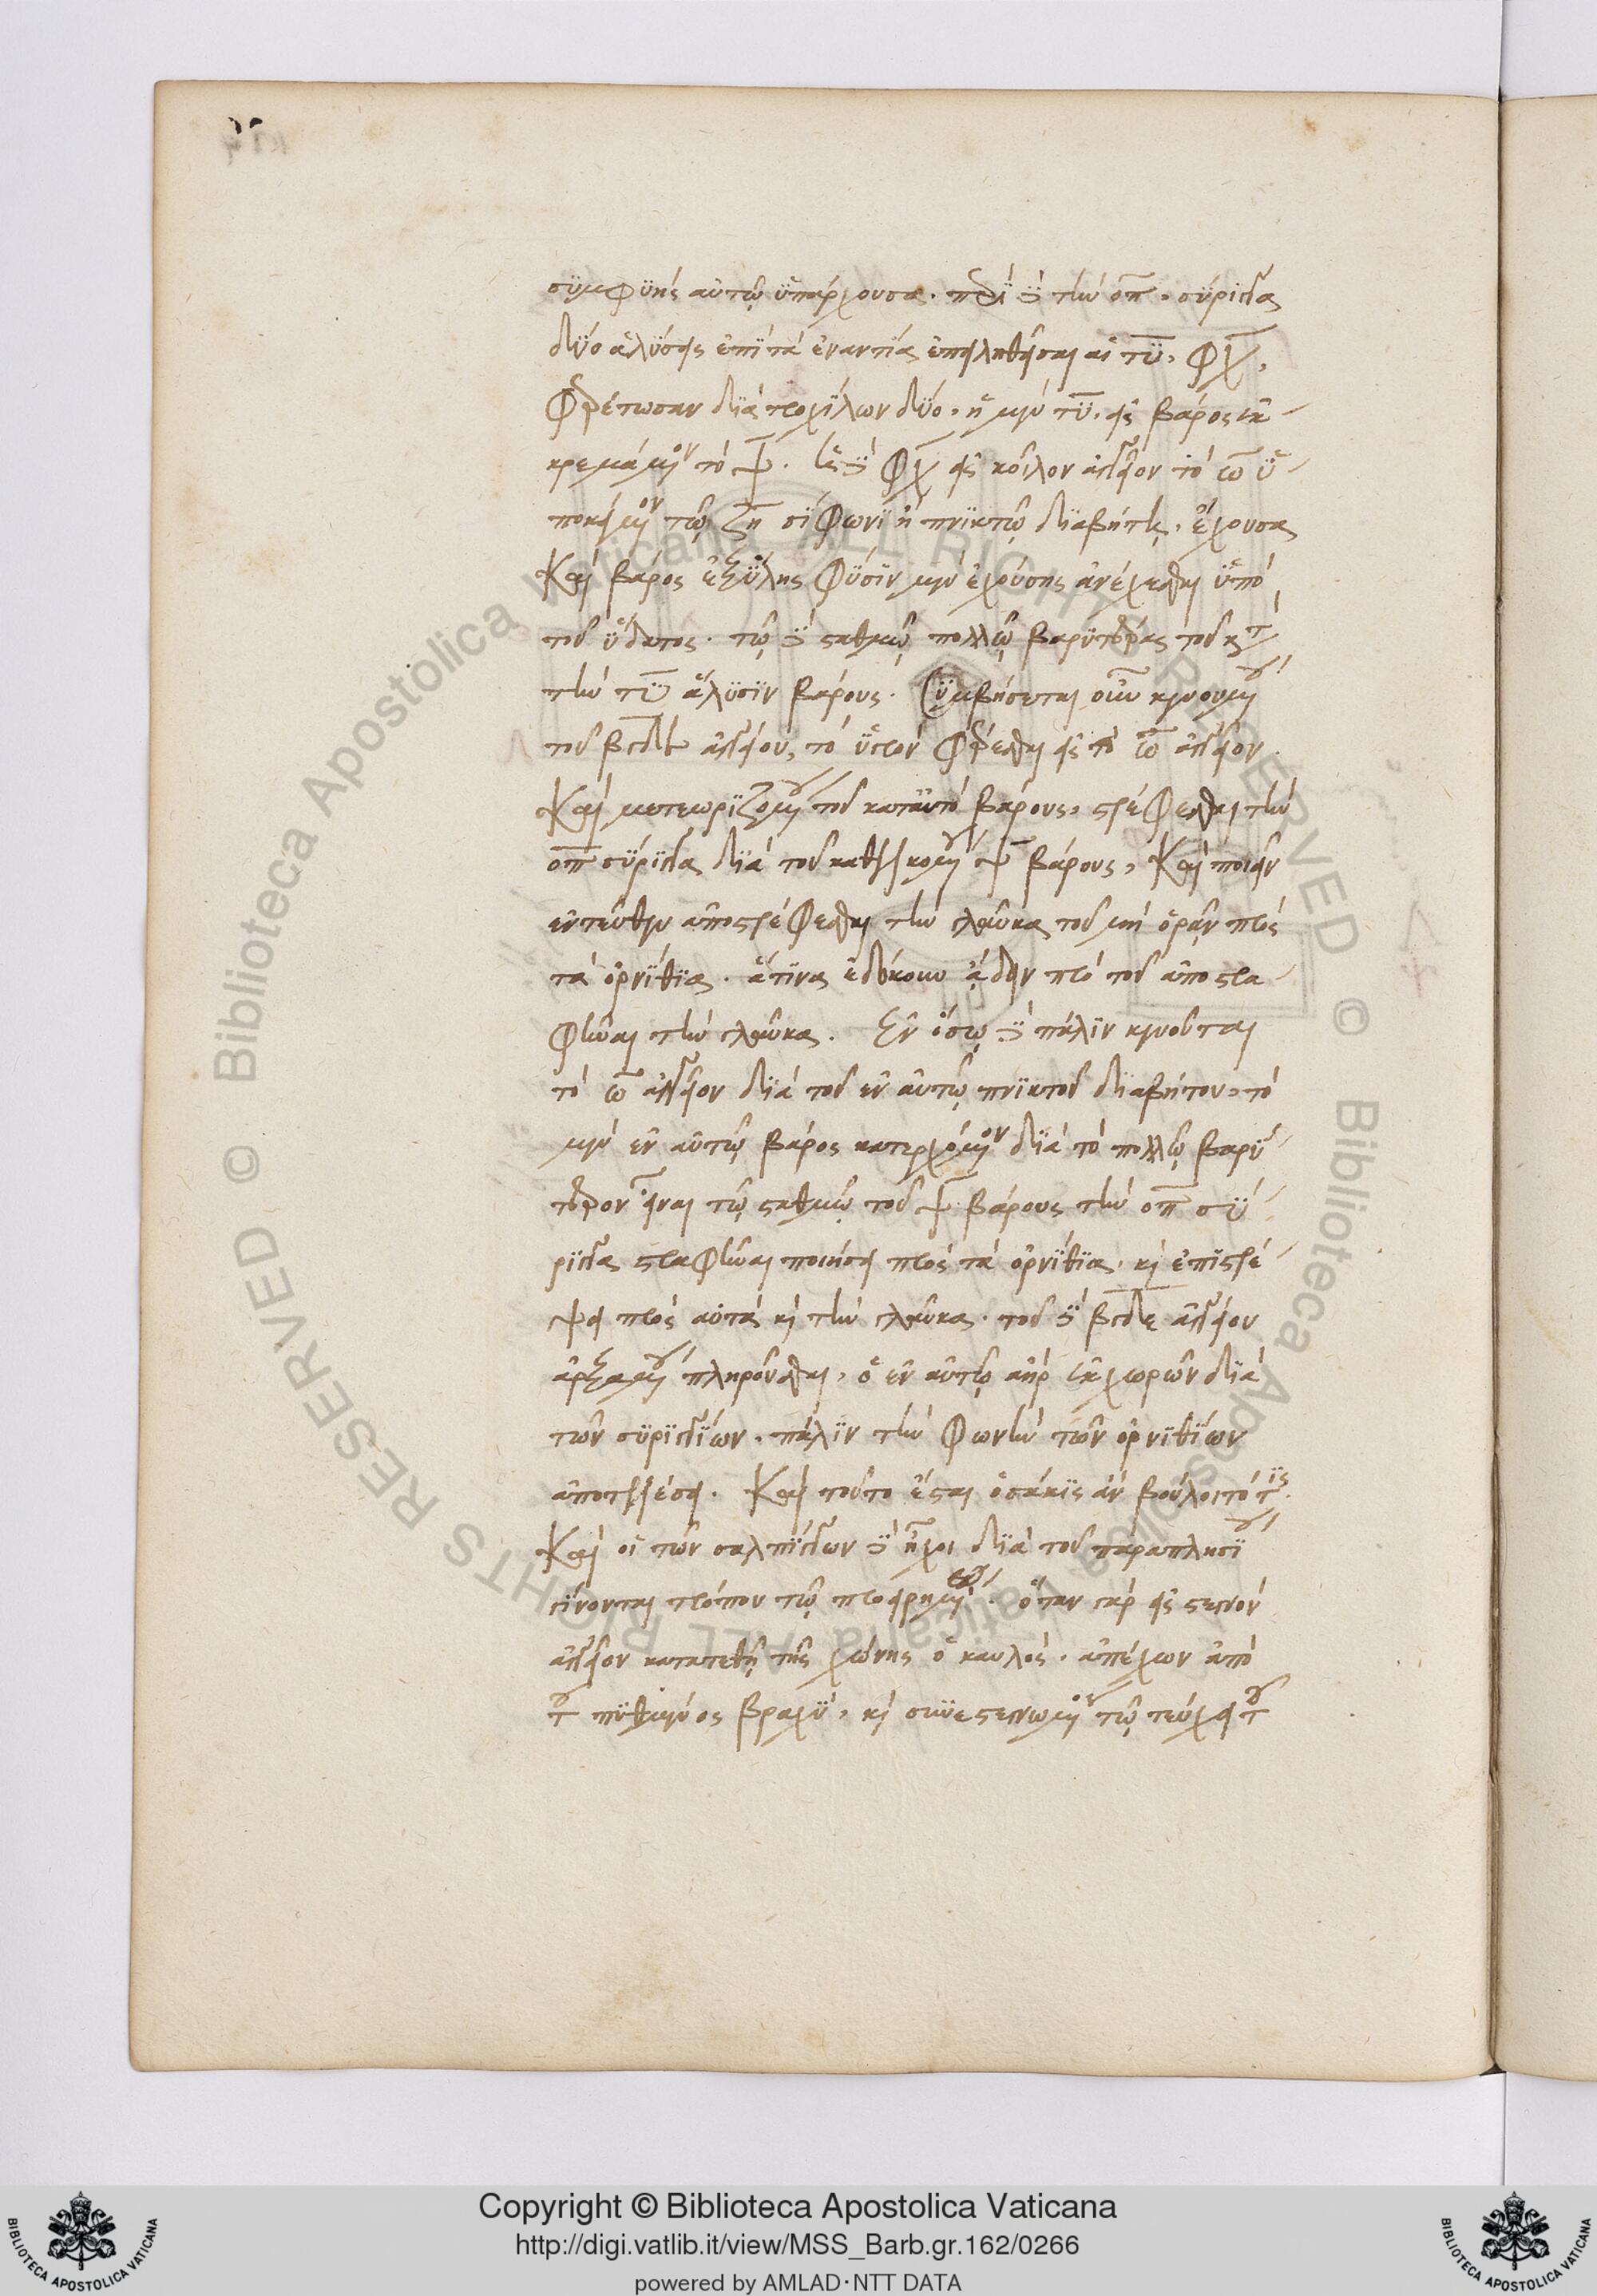 συμφυὴς αὐτῷ ὑπάρχουσα. περὶ δὲ τὴν οπ, σύριγγα
δύο ἁλύσεις ἐπὶ τὰ ἐναντία ἐπειληθεῖσαι αἱ τυ, φχ,
φερέτωσαν διὰ τροχίλων δύο, ἡ μὲν τυ, εἰς βάρος ἐκ-
κρεμάμενον τὸ ψ. ἡ δὲ φχ εἰς κοῖλον ἀγγεῖον τὸ ω ὑ-
ποκείμενον τῷ ζη σίφωνι ἢ πνικτῷ διαβήτῃ, ἔχουσα
καὶ βάρος ἐξ ὕλης φύσιν μὲν ἐχούσης ἀνέχεσθαι ὑπὸ
τοῦ ὕδατος. τῷ δὲ σταθμῷ πολλῷ βαρυτέρας τοῦ κατὰ
τὴν τυ ἅλυσιν βάρους. Συμβήσεται οὖν κενουμένου
τοῦ βγδε ἀγγείου, τὸ ὑγρὸν φέρεσθαι εἰς τὸ ω ἀγγεῖον.
καὶ μετεωριζομένου τοῦ κατ' αὐτὸ βάρους, στρέφεσθαι τὴν
οπ σύριγγα διὰ τοῦ καθελκομένου ψ βάρους, καὶ ποιεῖν
ἐντεῦθεν ἀποστρέφεσθαι τὴν γλαῦκα τοῦ μὴ ὁρᾶν πρὸς
τὰ ὀρνίθια. ἅτινα ἐδόκουν ᾄδειν πρὸ τοῦ ἀποστρα-
φῆναι τὴν γλαῦκα. Ἐν ὅσῳ δὲ πάλιν κενοῦται
τὸ ω ἀγγεῖον διὰ τοῦ ἐν αὐτῷ πνικτοῦ διαβήτου, τὸ
μὲν ἐν αὐτῷ βάρος κατερχόμενον διὰ τὸ πολλῷ βαρύ-
τερον εἶναι τῷ σταθμῷ τοῦ ψ βάρους τὴν οπ σύ-
ριγγα στραφῆναι ποιήσει πρὸς τὰ ὀρνίθια. καὶ ἐπιστρέ-
ψει πρὸς αὐτὰ καὶ τὴν γλαῦκα. τοῦ δὲ βγδε ἀγγείου
ἀρξαμένου πληροῦσθαι, ὁ ἐν αὐτῷ ἀὴρ ἐκχωρῶν διὰ
τῶν συριγγίων. πάλιν τὴν φωνὴν τῶν ὀρνιθίων
ἀποτελέσει. καὶ τοῦτο ἔσται ὁσάκις ἂν βούλοιτό τις.
καὶ οἱ τῶν σαλπίγγων δὲ ἦχοι διὰ τοῦ παραπλησίου
γίνονται τρόπου τῷ προειρημένῳ. ὅταν γὰρ εἰς στεγνὸν
ἀγγεῖον κατατεθῇ τῆς χώνης ὁ καυλὸς. ἀπέχων ἀπὸ
τοῦ πυθμένος βραχὺ, καὶ συνεστεγνωμένον τῷ τεύχει τοῦ
Copyright © Biblioteca Apostolica Vaticana
http://digi.vatlib.it/view/MSS_Barb.gr.162/0266
powered by AMLAD·NTT DATA